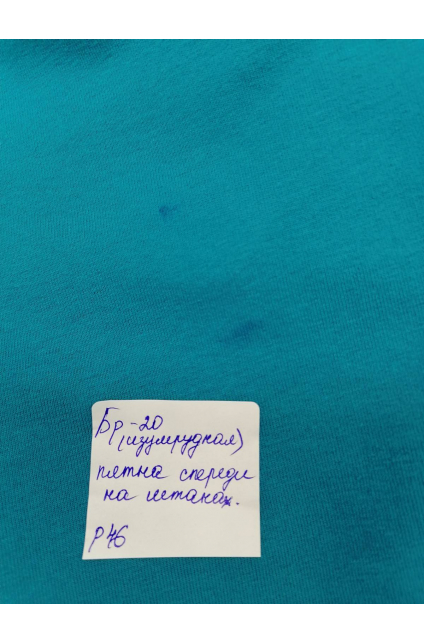 Бр-20
(изумрудная)
пятна спереди
на штанах.
р 46